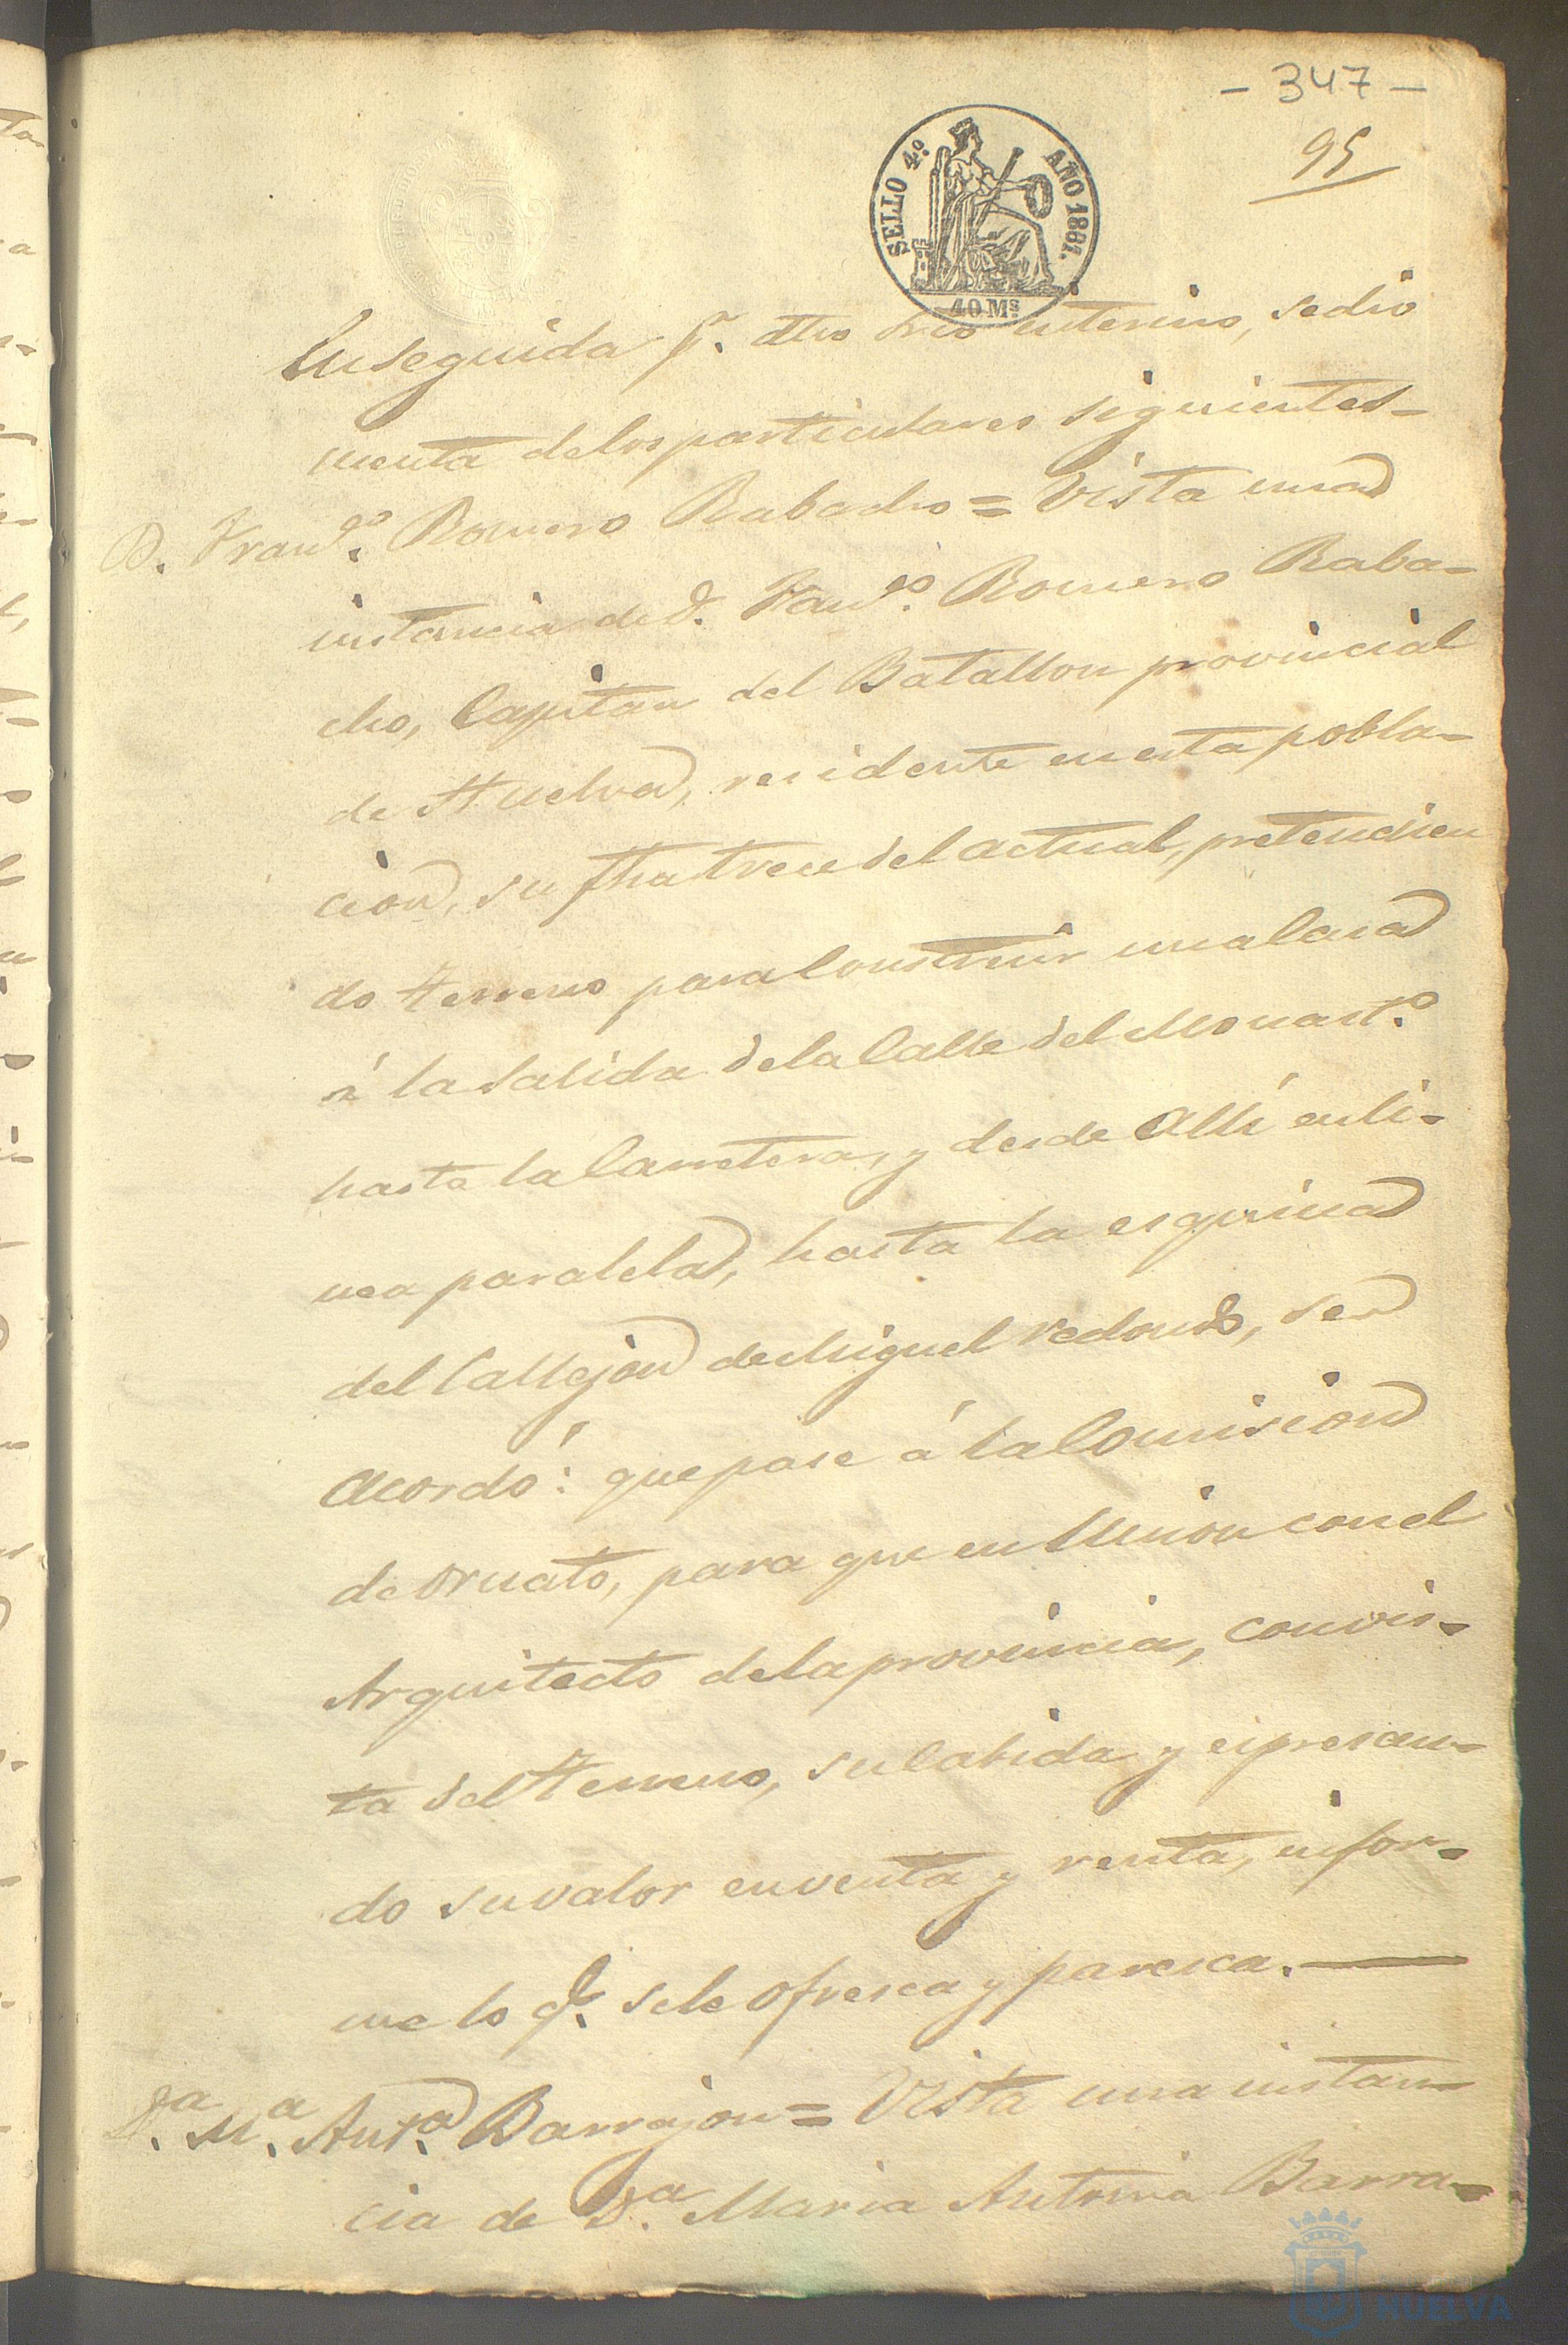 - 347 -
95
SELLO 4º AÑO 1861.
40 Ms
Enseguida pr. dho Srio interino, se dio
cuenta de los particulares siguientes-
D. Franco. Romero Rabadho = Vista una
instancia de D. Franco. Romero Raba-
dho, Capitan del Batallon provincial
de Huelva, residente en esta pobla-
cion, su fha trece del actual, pretendien
do terreno para Construir una Casa
á la salida de la Calle del Monasto.
hasta la Carretera, y desde Allí en li-
nea paralela, hasta la esquina
del Callejon de Miguel redondo, se
Acordó: que pase á la Comision
de ornato, para que en Union con el
Arquitecto de la provincia, convis-
ta del terreno, su Cabida y espresan-
do su valor en venta y renta, infor-
me lo q. se le ofresca y paresca. —
Da. Ma. Anta. Barrajon = Vista una instan-
cia de Da. Maria Antonia Barra-
HUELVA